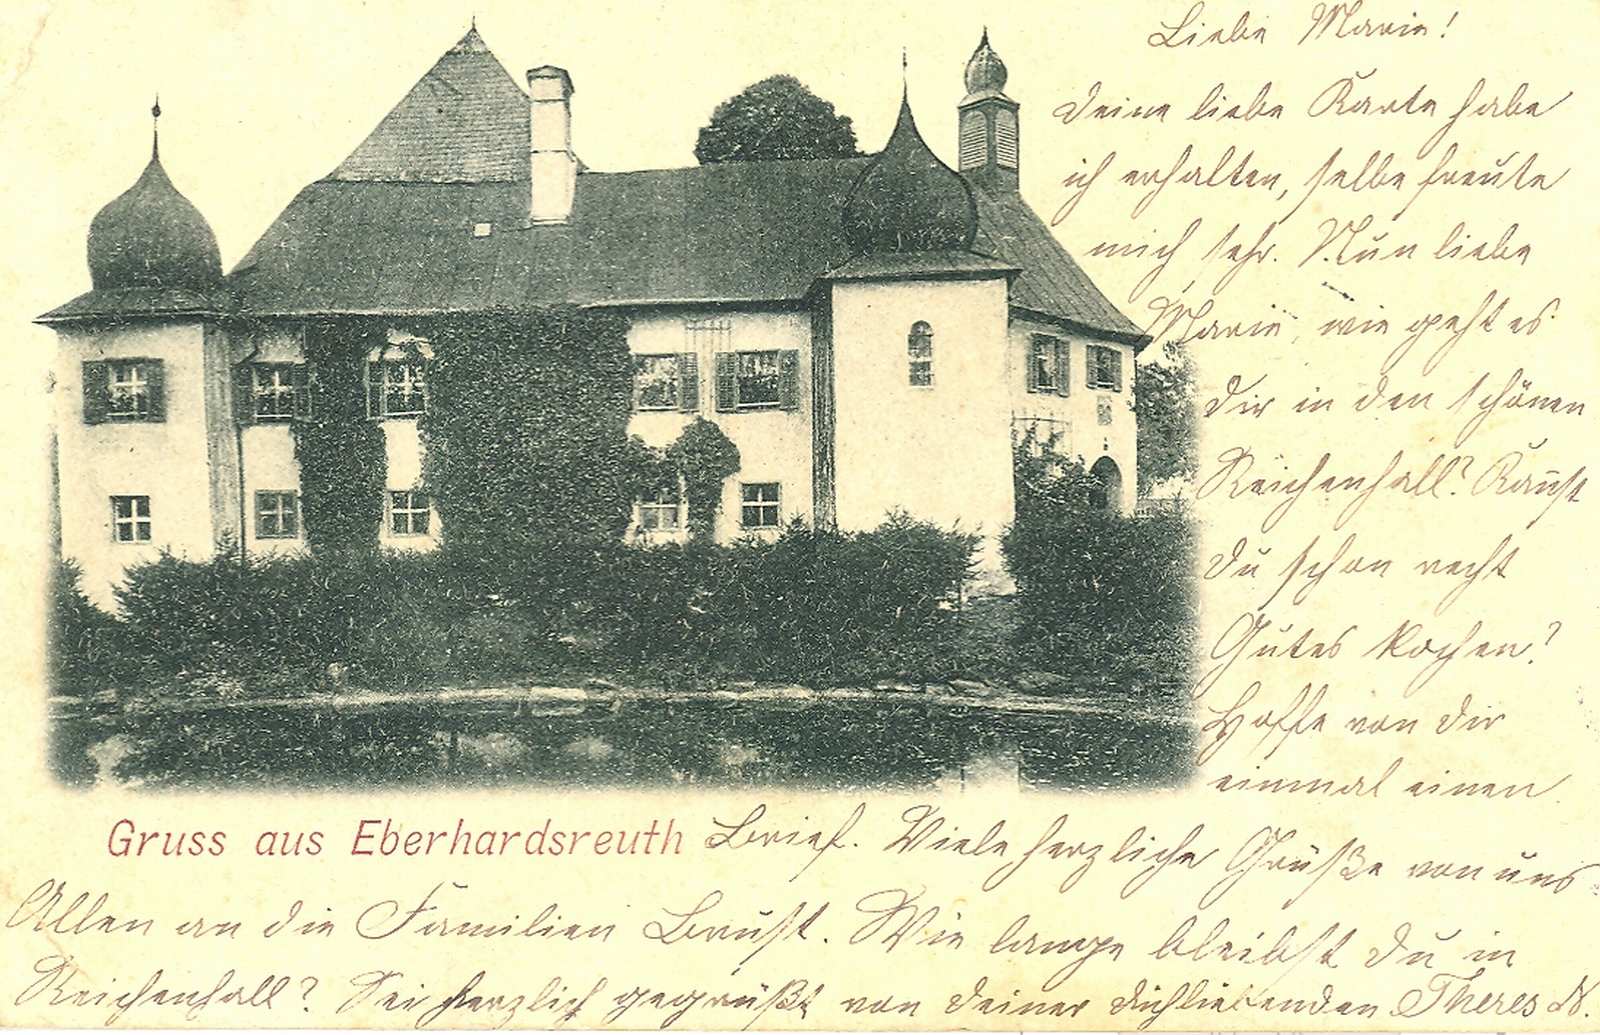 Liebe Marie!
Deine liebe Karte habe
ich erhalten, selbe freute
mich sehr. Nun liebe
Marie, wie geht es
Dir in den schönen
Reichenhall? Kanst
Du schon recht
Gutes kochen?
Hoffe von Dir
einmal einen
Gruss aus Eberhardsreuth
Brief. Viele herzliche Grüße von uns
Allen an die Familien Brust. Wie lange bleibst Du in
Reichenhall? Sei herzlich gegrüßt von Deiner Dichliebenden Theres N.